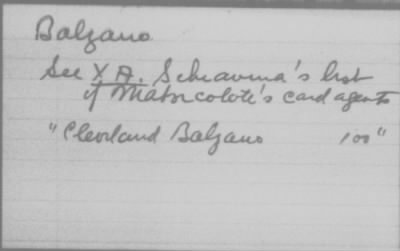 Balzano
See X A. Schiavina's list
of Matricolote's card agents
"Clevland Balzano 100"